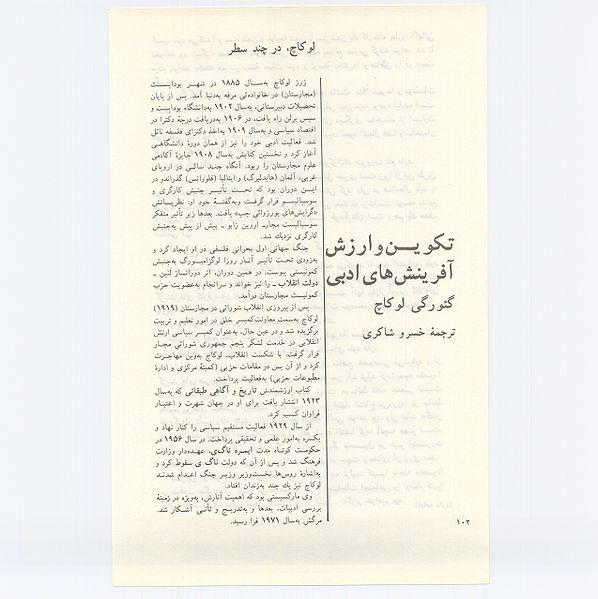 لوکاچ، در چند سطر
ژرژ لوکاچ به‌سال ۱۸۸۵ در شهر بوداپست
(مجارستان) در خانواده‌ئی مرفه به‌دنیا آمد. پس از پایان
تحصیلات دبیرستانی، به‌سال ۱۹۰۲ به‌دانشگاه بوداپست و
سپس برلن راه یافت، در ۱۹۰۶ به‌دریافت درجهٔ دکترا در
اقتصاد سیاسی و به‌سال ۱۹۰۹ به‌اخذ دکترای فلسفه نائل
شد. فعالیت ادبی خود را نیز از همان دورهٔ دانشگاهی
آغاز کرد و نخستین کتابش به‌سال ۱۹۰۸ جایزهٔ آکادمی
علوم مجارستان را ربود. آنگاه چند سالی در اروپای
غربی، آلمان (هایدلبرگ) و ایتالیا (فلورانس) گذراندو در
این دوران بود که تحت تأثیر جنبش کارگری و
سوسیالیسم قرار گرفت و به‌گفتهٔ خود او، نظریاتش
«گرایش‌های بورژوائی چپ» یافت. بعدها زیر تأثیر متفکر
سوسیالیست مجار، اروین زابو ـ بیش از پیش به‌جنبش
کارگری نزدیك شد.
جنگ جهانی اول بحرانی فلسفی در او ایجاد کرد و
به‌زودی تحت تأثیر آثار روزا لوگزامبورگ به‌جنبش
کمونیستی پیوست. در همین دوران، اثر دورانساز لنین ـ
دولت انقلاب ـ را نیز خواند و سرانجام به‌عضویت حزب
کمونیست مجارستان درآمد.
پس از پیروزی انقلاب شورائی در مجارستان (۱۹۱۹)
لوکاچ به‌سمت معاونت‌کمیسر خلق در امور تعلیم و تربیت
برگزیده شد و در عین حال، به‌عنوان کمیسر سیاسی ارتش
انقلابی در خدمت لشکر پنجم جمهوری شورائی مجار
قرار گرفت. با شکست انقلاب، لوکاچ به‌وین مهاجرت
کرد و از آن پس در مقامات حزبی (کمیتهٔ مرکزی و ادارهٔ
مطبوعات حزبی) به‌فعالیت پرداخت.
کتاب ارزشمندش تاریخ و آگاهی طبقاتی که به‌سال
۱۹۲۳ انتشار یافت برای او در جهان شهرت و اعتبار
فراوان کسب کرد.
از سال ۱۹۲۹ فعالیت مستقیم سیاسی را کنار نهاد و
یکسره به‌امور علمی و تحقیقی پرداخت. در سال ۱۹۵۶ در
حکومت کوتاه مدت ایمره ناگ‌ی، عهده‌دار وزارت
فرهنگ شد و پس از آن که دولت ناگ ی سقوط کرد و
به‌اشارهٔ روس‌ها نخست‌وزیر وزیر جنگ اعدام شدند
لوکاچ نیز یك چند به‌زندان افتاد.
وی مارکسیستی بود که اهمیت آثارش، به‌ویژه در زمینهٔ
بررسی ادبیات، بعدها و به‌تدریج و تأنی آشکار شد.
مرگش به‌سال ۱۹۷۱ فرا رسید.
تکوین و ارزش
آفرینش‌های ادبی
گئورگی لوکاچ
ترجمهٔ خسرو شاکری
۱۰۲